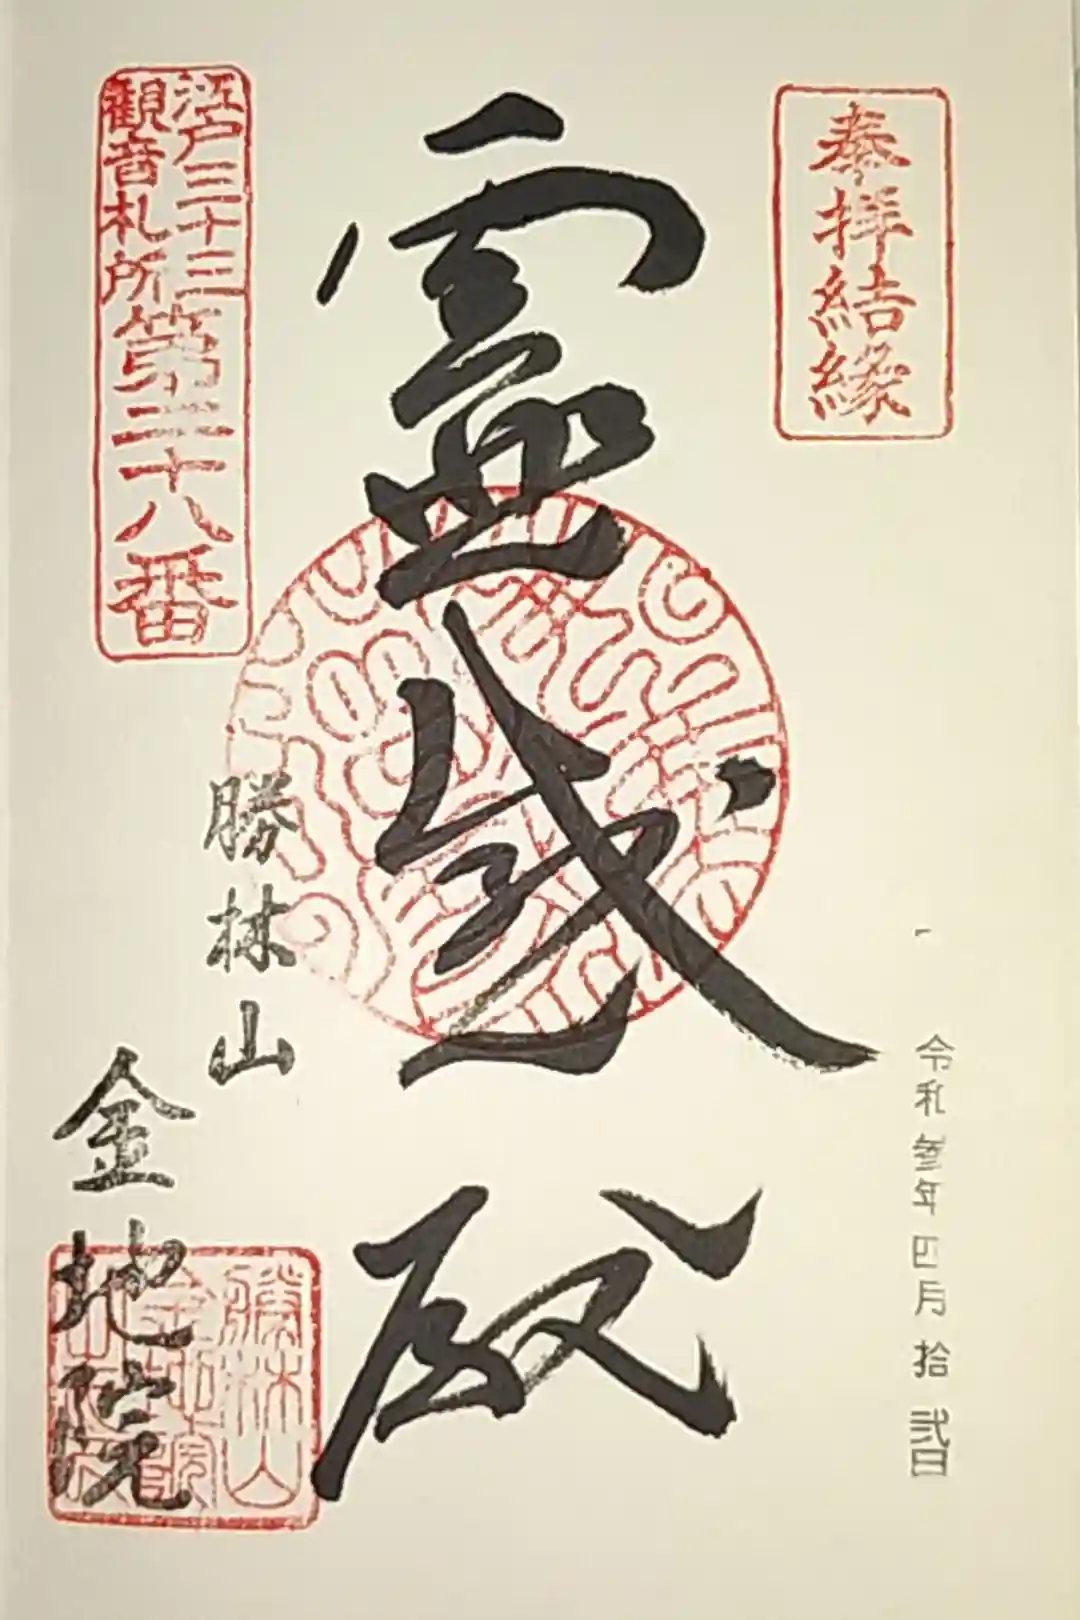 奉拝結縁
令和参年四月拾弐日
霊感殿
江戸三十三
観音札所
第二十八番
勝林山
金地院
勝林山
金地院